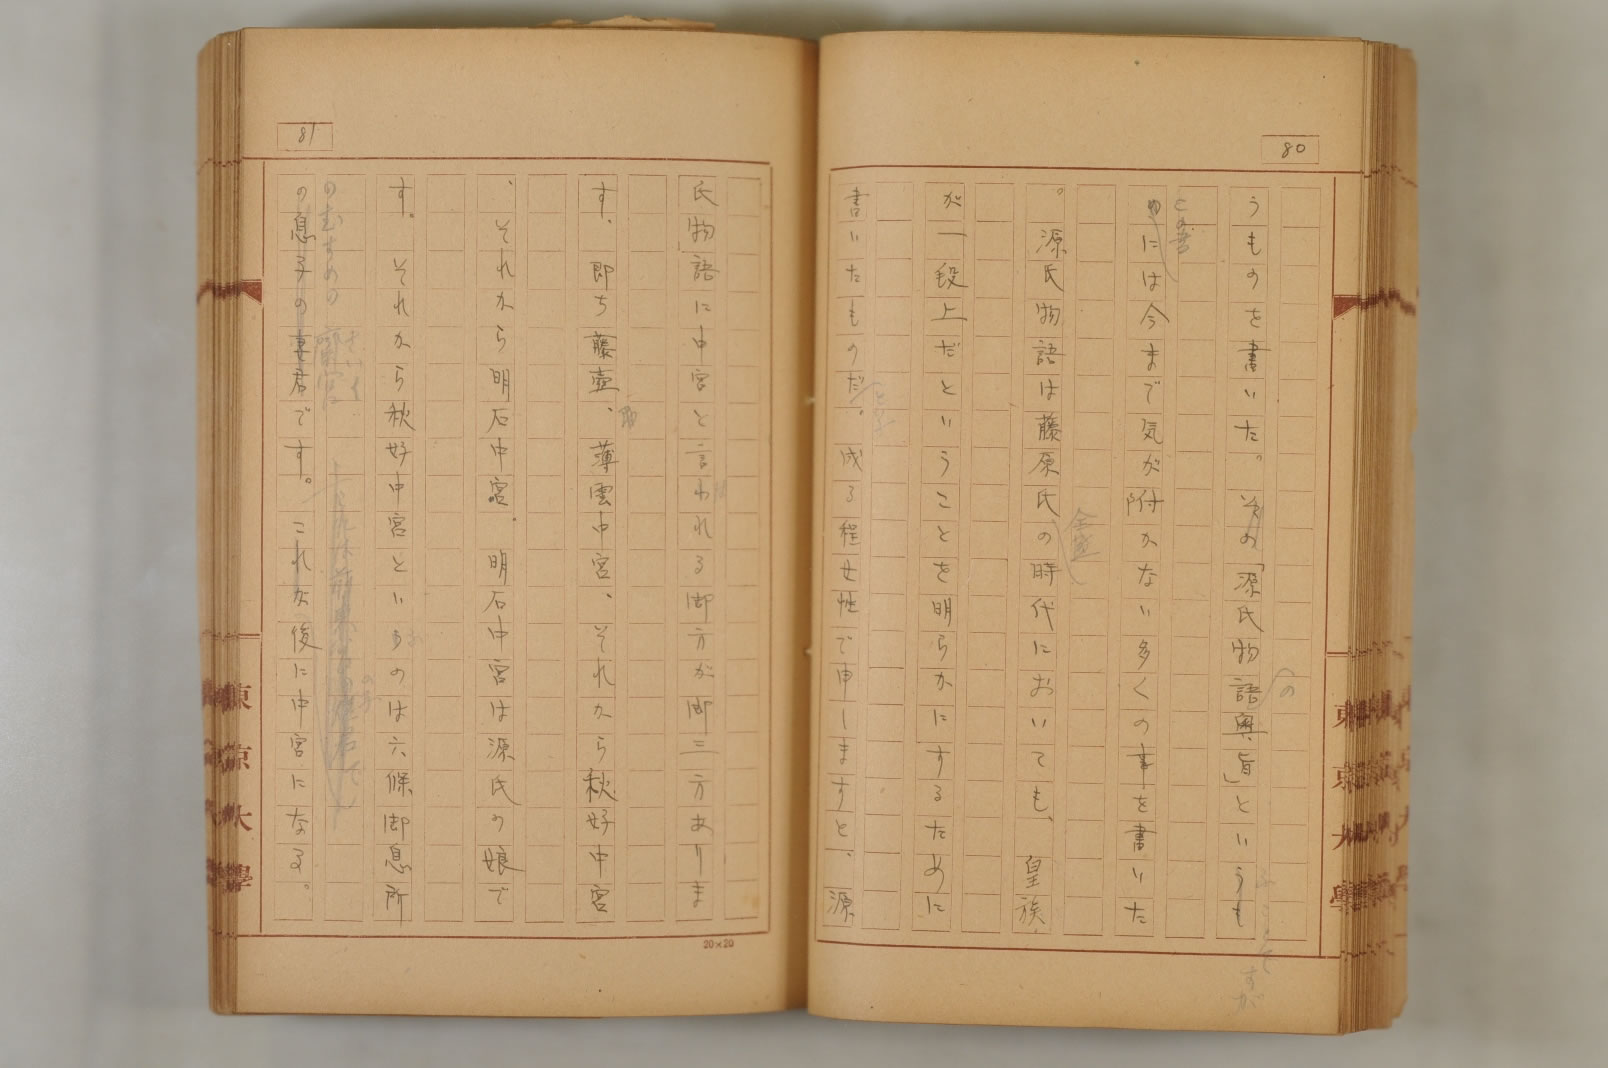 80
うものを書いた。その「源氏物語奥旨」というも
のには今まで気が附かない多くの事を書いた
この書
。源氏物語は藤原氏の時代においても、皇族
全盛
が一段上だということを明らかにするために
書いたものだ。成る程女性で申しますと、源
の
ことで
すが
81
氏物語に中宮と言われる御方が御三方ありま
す、即ち藤壺、薄雲中宮、それから秋好中宮
、それから明石中宮。明石中宮は源氏の娘で
す。それから秋好中宮というのは六條御息所
のむすめの齋宮
さいく
の息子の妻君です。これが後に中宮になる。
20×20
東京大學
東京大學